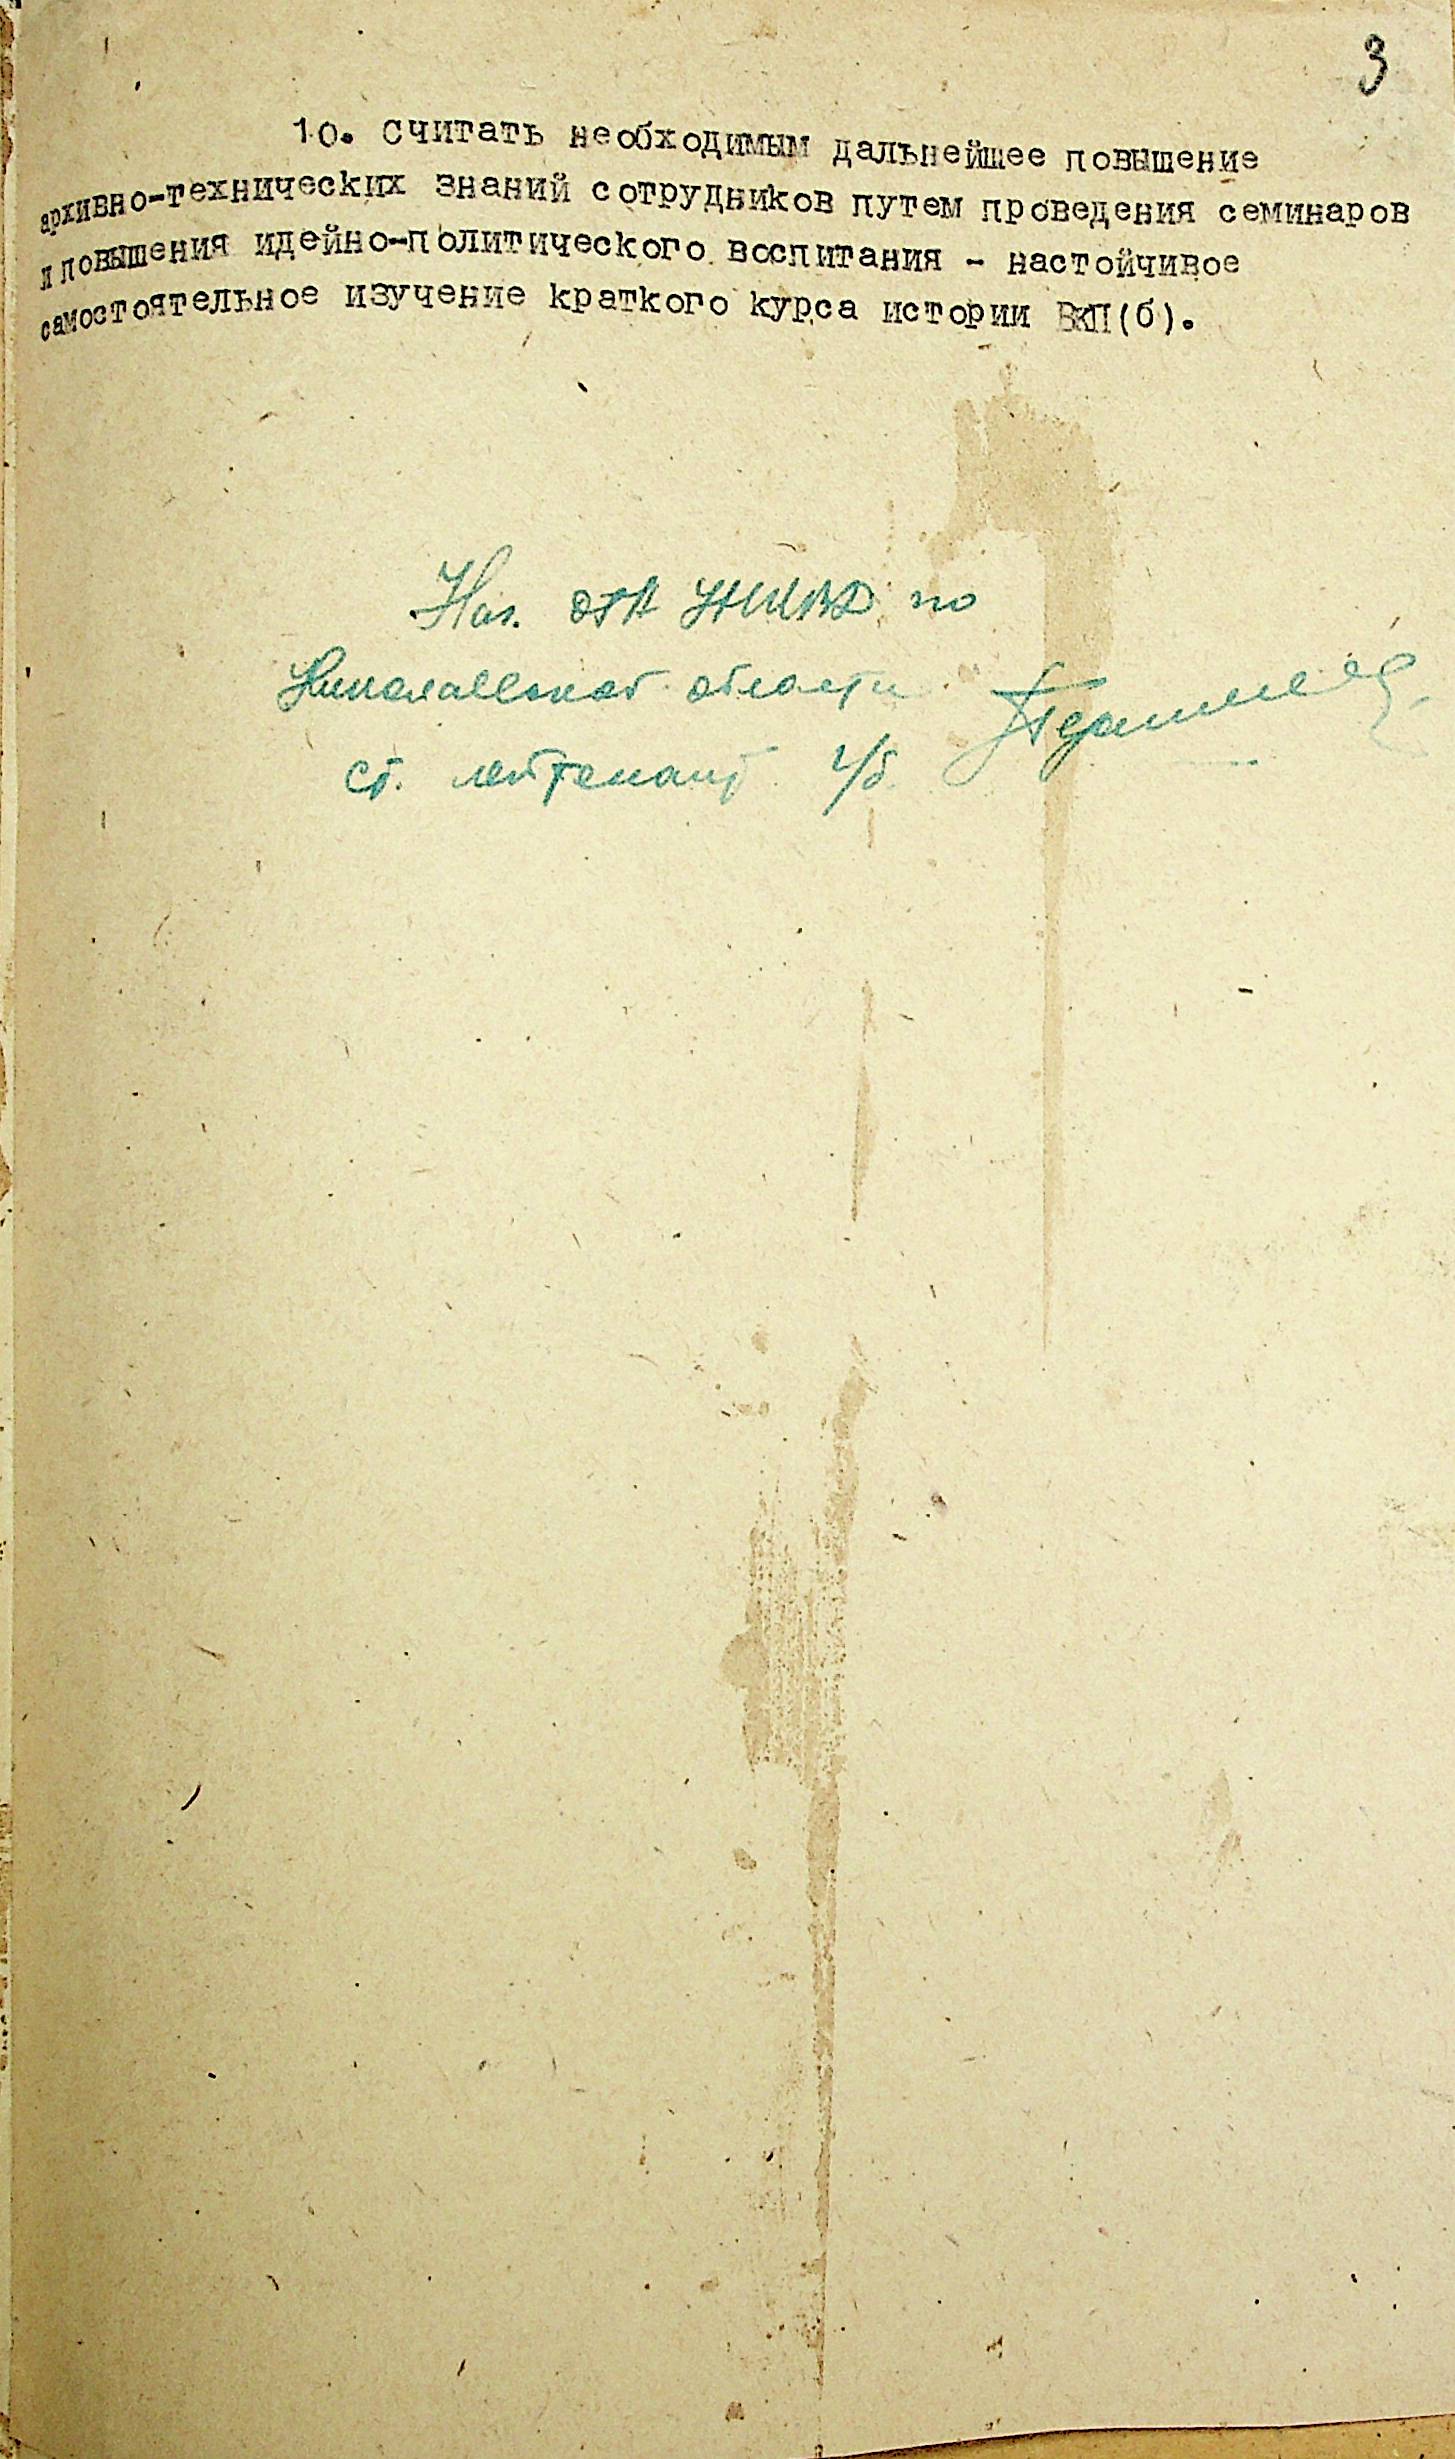 3
10. Считать необходимым дальнейшее повышение
архивно-технических знаний сотрудников путем проведения семинаров
и повышения идейно-политического воспитания - настойчивое
самостоятельное изучение краткого курса истории ВКП(б).
Нач. ОГА УНКВД по
Николаевской области
ст. лейтенант г/б